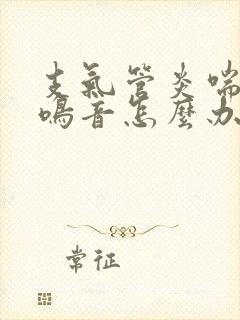 支氣管炎喘
鳴音怎麼办
常征